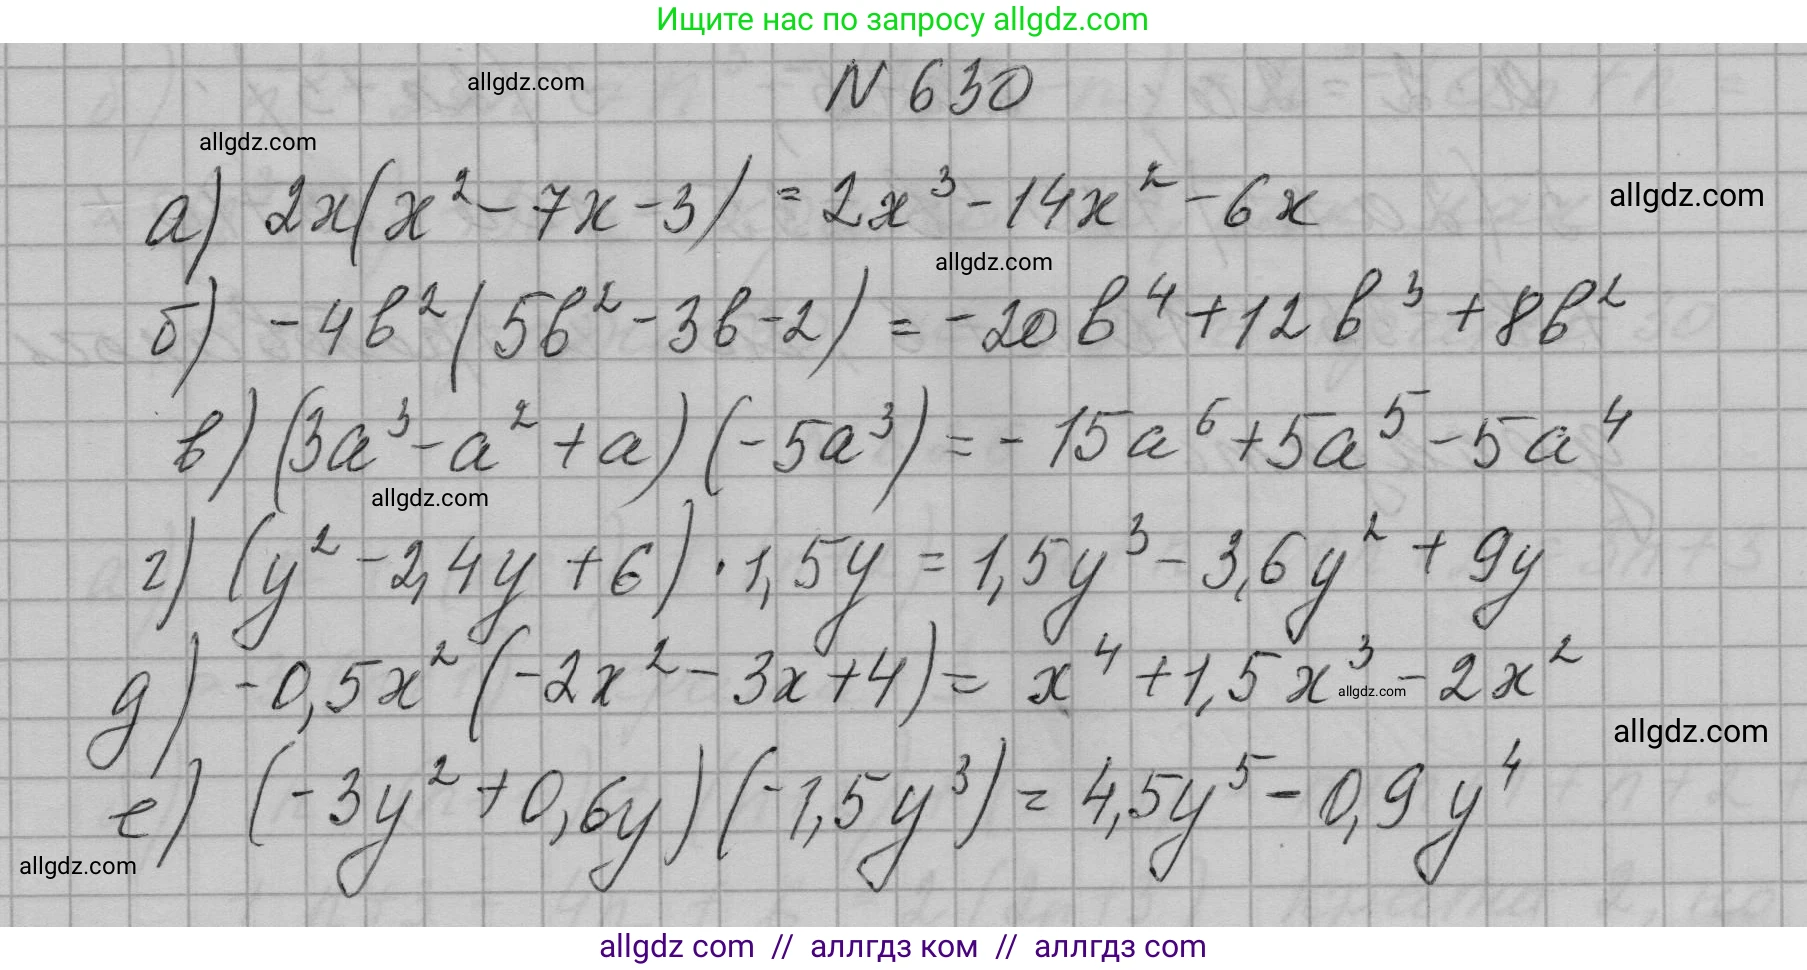 Ищите нас по запросу allgdz.com
allgdz.com
N 630
allgdz.com
а) 2x(x² - 7x - 3) = 2x³ - 14x² - 6x
allgdz.com
allgdz.com
б) -4b²(5b² - 3b - 2) = -20b⁴ + 12b³ + 8b²
в) (3a³ - a² + a)(-5a³) = -15a⁶ + 5a⁵ - 5a⁴
allgdz.com
г) (y² - 2,4y + 6) · 1,5y = 1,5y³ - 3,6y² + 9y
д) -0,5x²(-2x² - 3x + 4) = x⁴ + 1,5x³ - 2x²
allgdz.com
allgdz.com
е) (-3y² + 0,6y)(-1,5y³) = 4,5y⁵ - 0,9y⁴
allgdz.com
allgdz com // аллгдз ком // аллгдз com